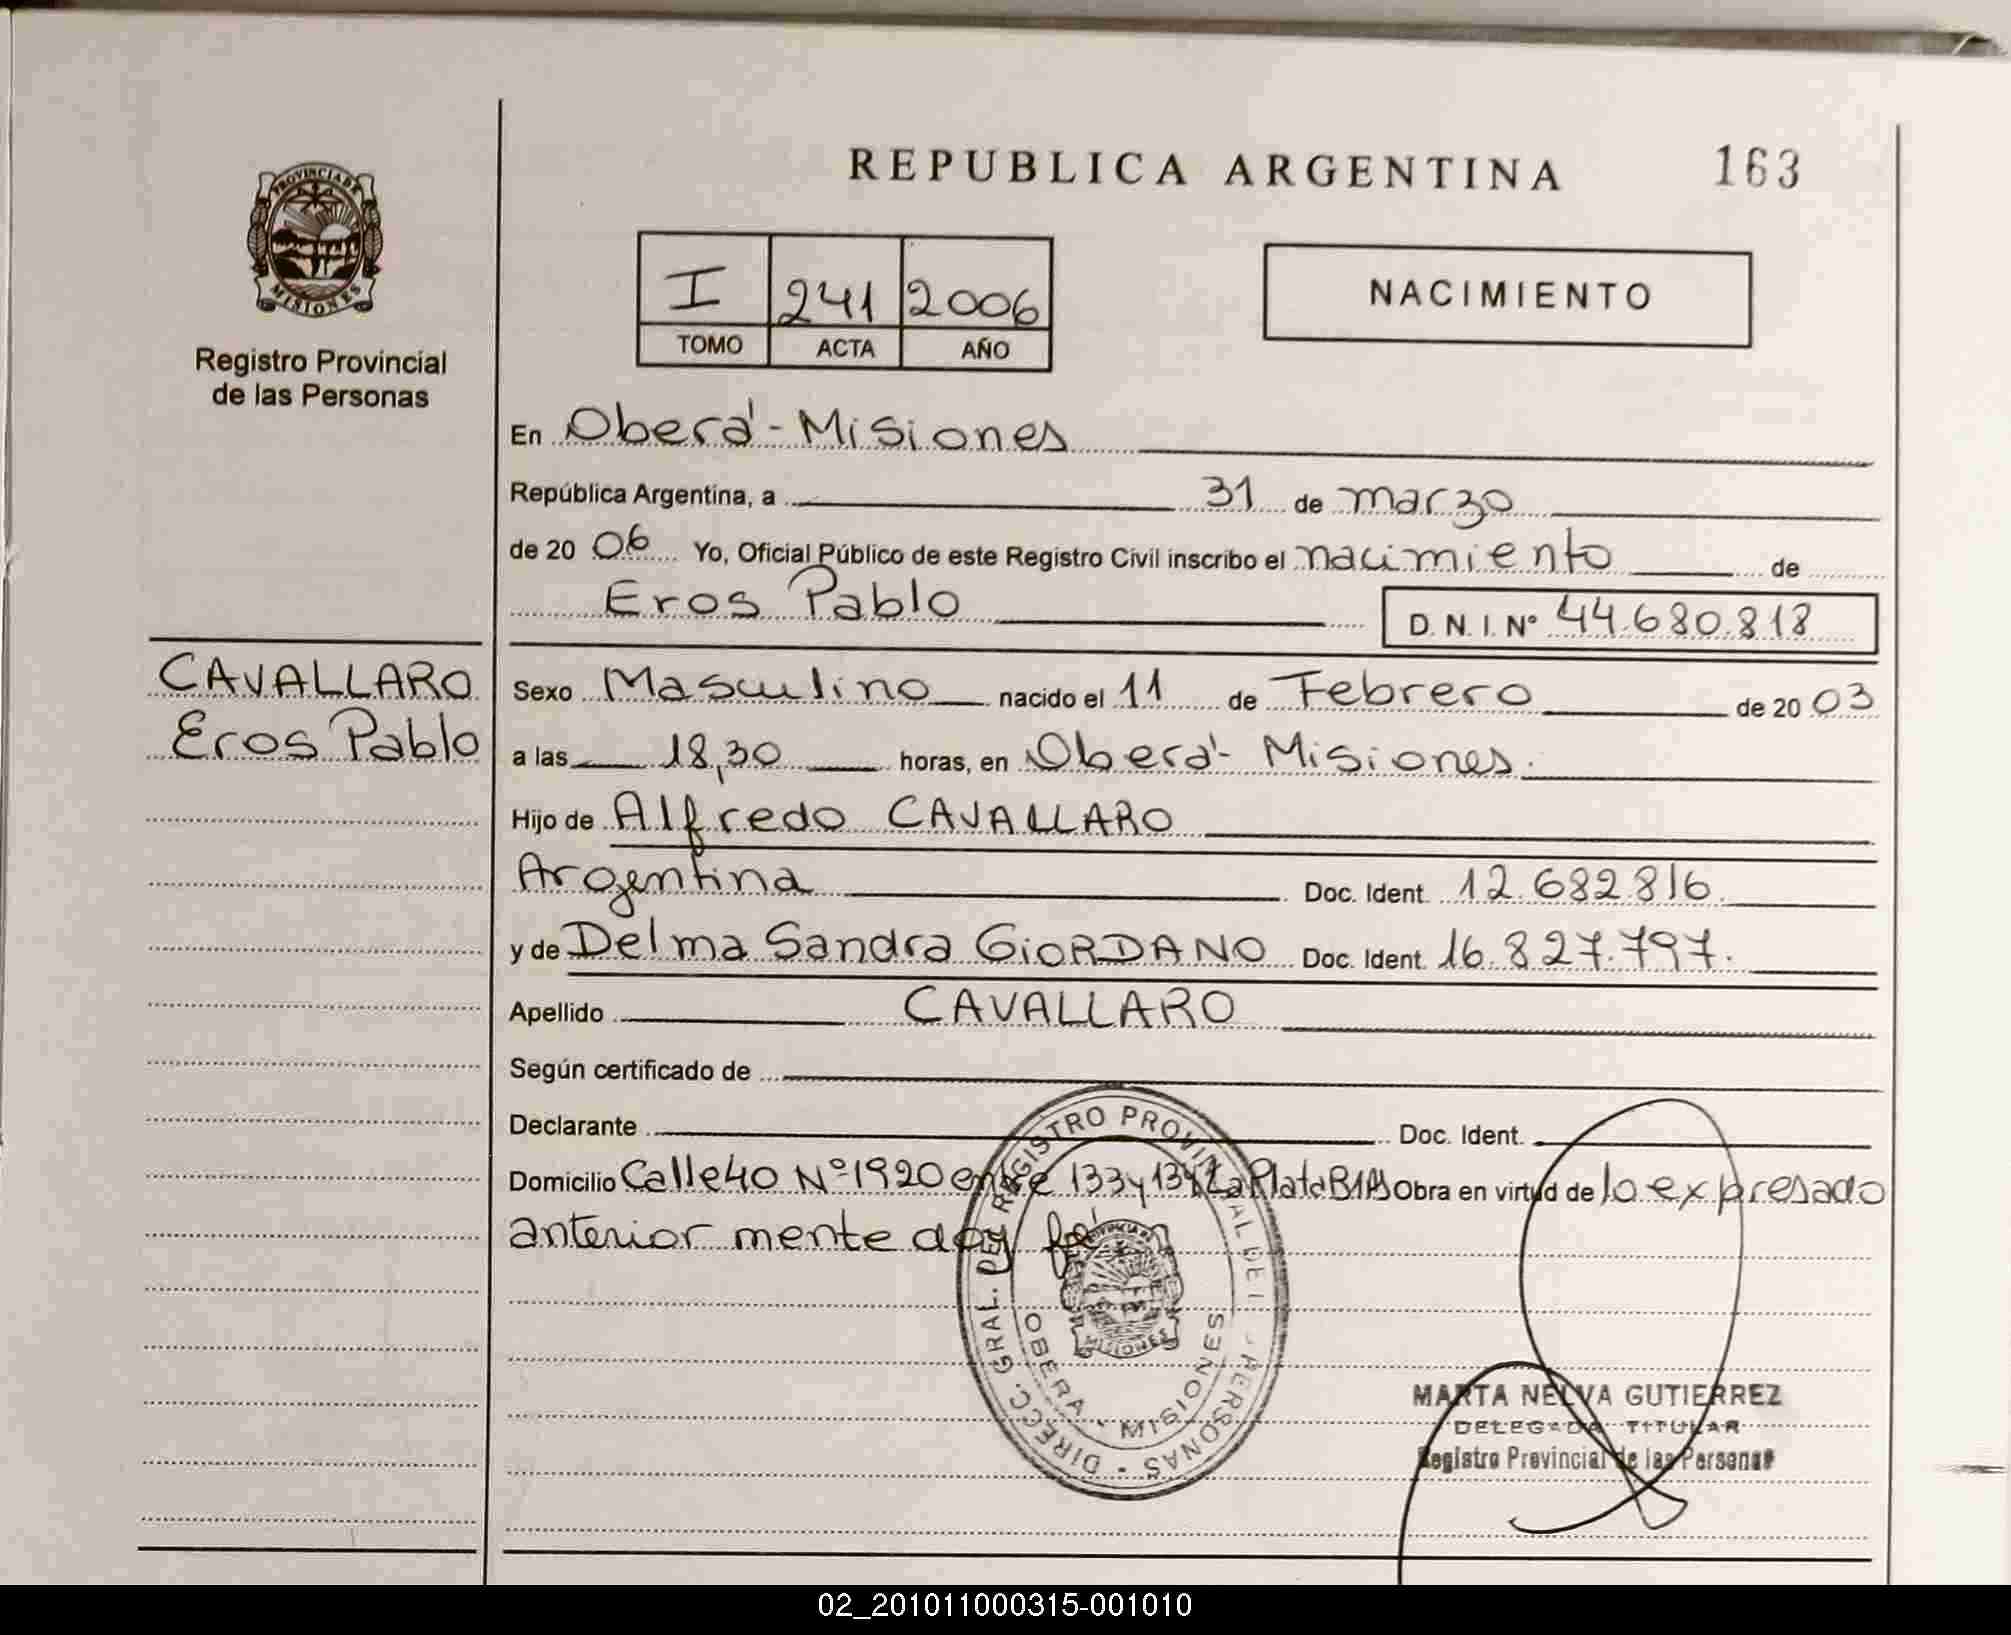 REPUBLICA ARGENTINA
163
PROVINCIA DE MISIONES
Registro Provincial
de las Personas
I 241 2006
TOMO ACTA AÑO
NACIMIENTO
En Oberá - Misiones
República Argentina, a 31 de marzo
de 20 06 Yo, Oficial Público de este Registro Civil inscribo el nacimiento de
Eros Pablo D. N. I. Nº 44.680.818
CAVALLARO
Eros Pablo
Sexo Masculino nacido el 11 de Febrero de 20 03
a las 18,30 horas, en Oberá - Misiones.
Hijo de Alfredo CAVALLARO
Argentina Doc. Ident. 12.682.816.
y de Delma Sandra GIORDANO Doc. Ident. 16.827.797.
Apellido CAVALLARO
Según certificado de
Declarante Doc. Ident.
Domicilio Calle 40 Nº 1920 entre 133 y 134 La Plata Obra en virtud de lo expresado
anterior mente doy fe
DIRECC. GRAL. DEL REGISTRO PROVINCIAL DE PERSONAS
OBERA - MISIONES
MARTA NELVA GUTIERREZ
DELEGADA TITULAR
Registro Provincial de las Personas
02_201011000315-001010